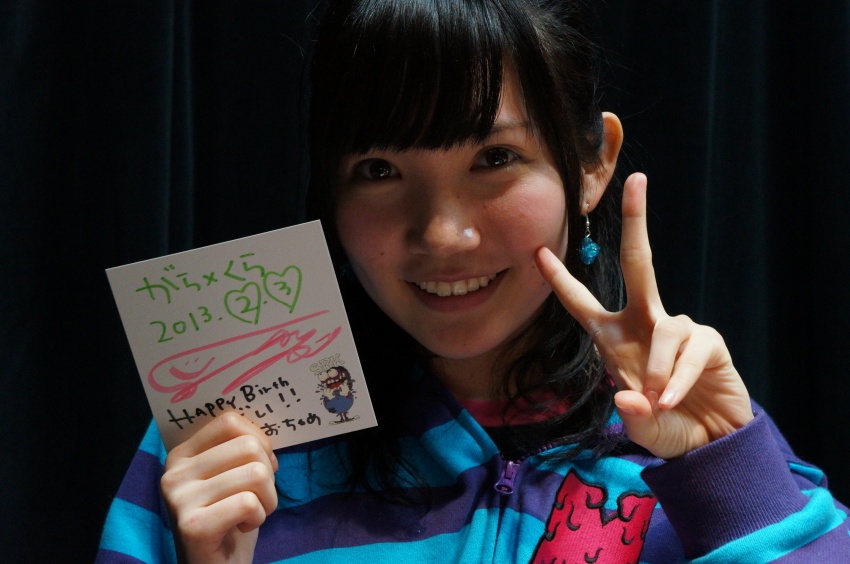 がら×くら
2013. 2 3
HAPPY BiRth
い!!
おちゃめ